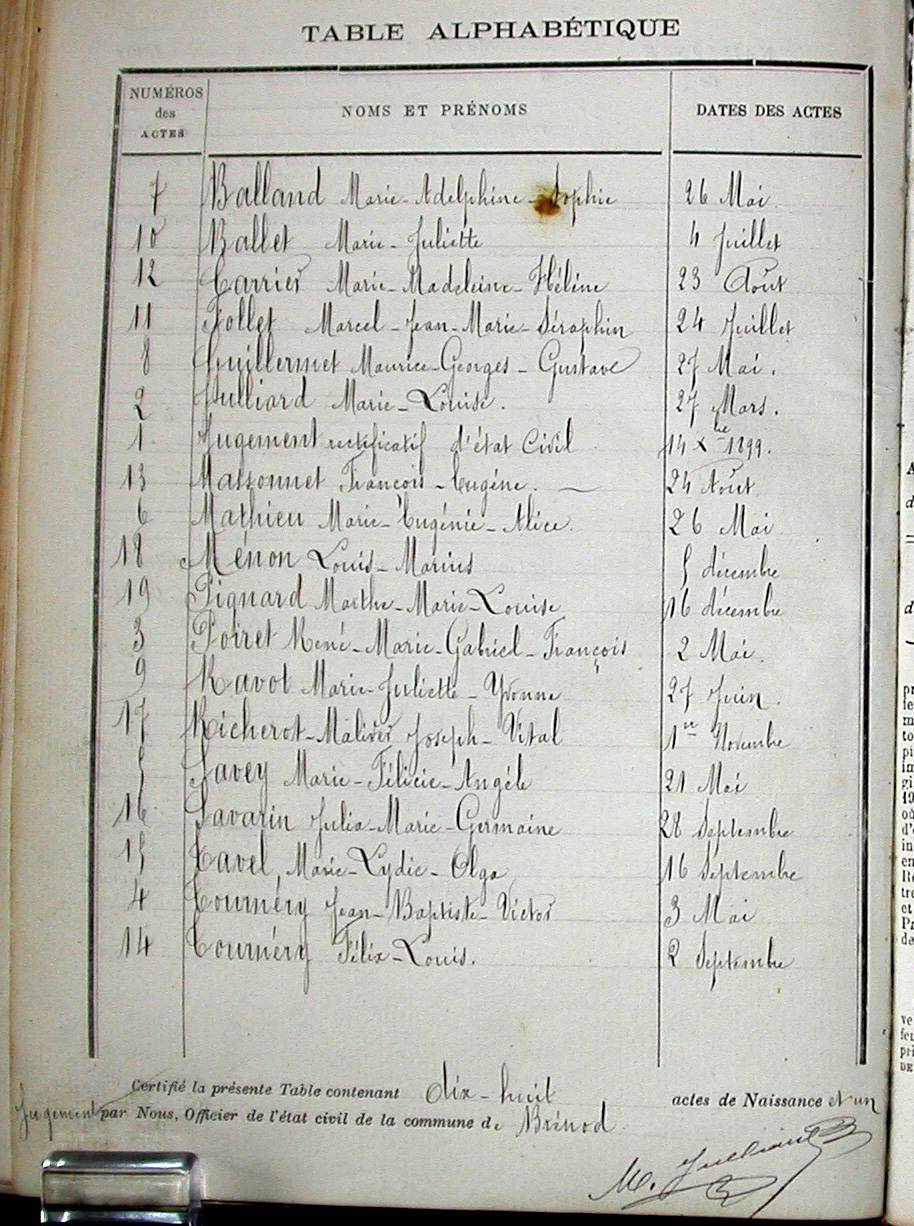 TABLE ALPHABÉTIQUE
NUMÉROS des ACTES NOMS ET PRÉNOMS DATES DES ACTES
7 Balland Marie-Adelphine-Sophie 26 Mai
10 Ballet Marie-Juliette 4 Juillet
12 Carrier Marie-Madeleine-Hélène 23 Août
11 Follet Marcel-Jean-Marie-Séraphin 24 Juillet
8 Guillermet Maurice-Georges-Gustave 27 Mai.
2 Julliard Marie-Louise. 27 Mars.
1 Jugement rectificatif d'état Civil 14 Xbre 1899.
13 Massonnet François-Eugène. 24 Août
6 Mathieu Marie-Eugénie-Alice 26 Mai
18 Ménon Louis-Marius 5 décembre
19 Pignard Marthe-Marie-Louise 16 décembre
3 Poiret René-Marie-Gabriel-François 2 Mai.
9 Ravot Marie-Juliette-Yvonne 27 Juin.
17 Richerot-Malivér Joseph-Vital 1er Novembre
5 Savey Marie-Félicie-Angèle 21 Mai
16 Savarin Julia-Marie-Germaine 28 Septembre
15 Tavel Marie-Lydie-Olga 16 Septembre
4 Tournéry Jean-Baptiste-Victor 3 Mai
14 Tournéry Félix-Louis. 2 Septembre
Certifié la présente Table contenant dix-huit actes de Naissance et un
Jugement par Nous, Officier de l'état civil de la commune de Brénod
M. Julliard